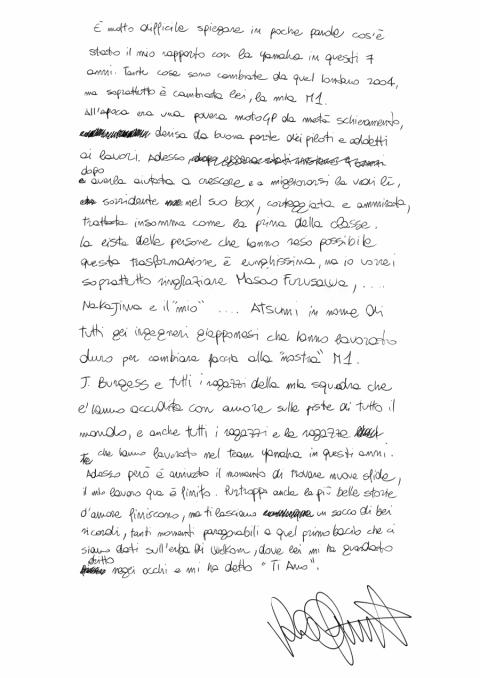 È molto difficile spiegare in poche parole cos'è
stato il mio rapporto con la Yamaha in questi 7
anni. Tante cose sono cambiate da quel lontano 2004,
ma soprattutto è cambiata lei, la mia M1.
All'epoca era una povera motoGP da metà schieramento,
derisa da buona parte dei piloti e addetti
ai lavori. Adesso
dopo
averla aiutata a crescere e a migliorarsi la vedi lì,
sorridente nel suo box, corteggiata e ammirata,
trattata insomma come la prima della classe.
La lista delle persone che hanno reso possibile
questa trasformazione è lunghissima, ma io vorrei
soprattutto ringraziare Masao Furusawa, ....
Nakajima e il "mio" .... Atsumi in nome di
tutti gli ingegneri giapponesi che hanno lavorato
duro per cambiare faccia alla "nostra" M1.
J. Burgess e tutti i ragazzi della mia squadra che
l'hanno accudita con amore sulle piste di tutto il
mondo, e anche tutti i ragazzi e le ragazze
che hanno lavorato nel team Yamaha in questi anni.
Adesso però è arrivato il momento di trovare nuove sfide,
il mio lavoro qua è finito. Purtroppo anche le più belle storie
d'amore finiscono, ma ti lasciano un sacco di bei
ricordi, tanti momenti paragonabili a quel primo bacio che ci
siamo dati sull'erba di Welkom, dove lei mi ha guardato
dritto
negli occhi e mi ha detto "Ti Amo".